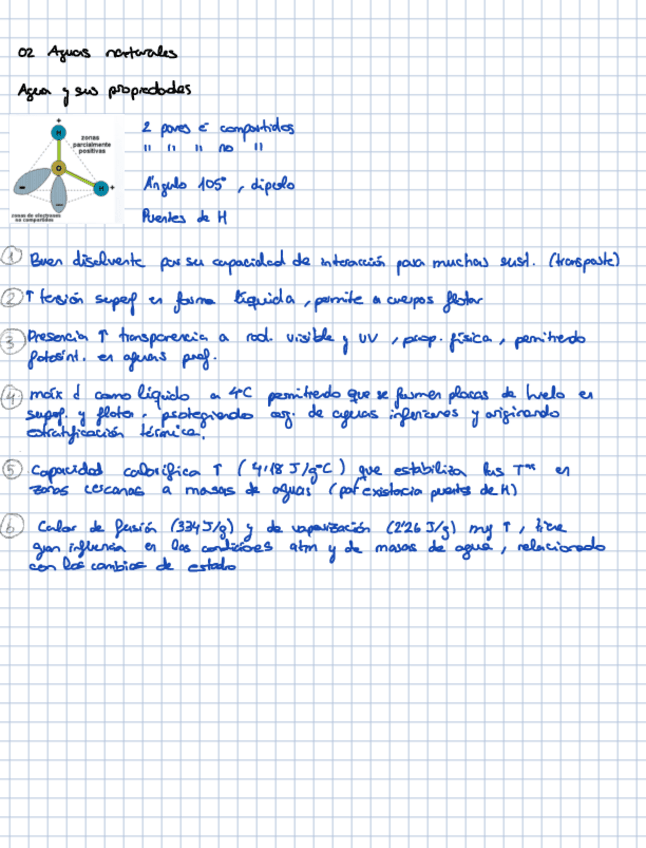 02 Aguas naturales
Agua y sus propiedades
+
H
zonas
parcialmente
positivas
O
H +
-
-
zonas de electrones
no compartidos
2 pares e⁻ compartidos
" " " no "
Ángulo 105°, dipolo
Puentes de H
1 Buen disolvente por su capacidad de interacción para muchas sust. (transporte)
2 ↑ tensión superf en forma líquida, permite a cuerpos flotar
3 Presencia ↑ transparencia a rad. visible y UV, prop. física, permitiendo
fotosínt. en aguas prof.
4 máx d como líquido a 4°C permitiendo que se formen placas de hielo en
superf. y flote, protegiendo org. de aguas inferiores y originando
estratificación térmica.
5 Capacidad calorífica ↑ (4'18 J/g°C) que estabiliza las Tªˢ en
zonas cercanas a masas de aguas (por existencia puentes de H)
6 Calor de fusión (334 J/g) y de vaporización (2'26 J/g) muy ↑, tiene
gran influencia en las condiciones atm y de masas de agua, relacionado
con los cambios de estado